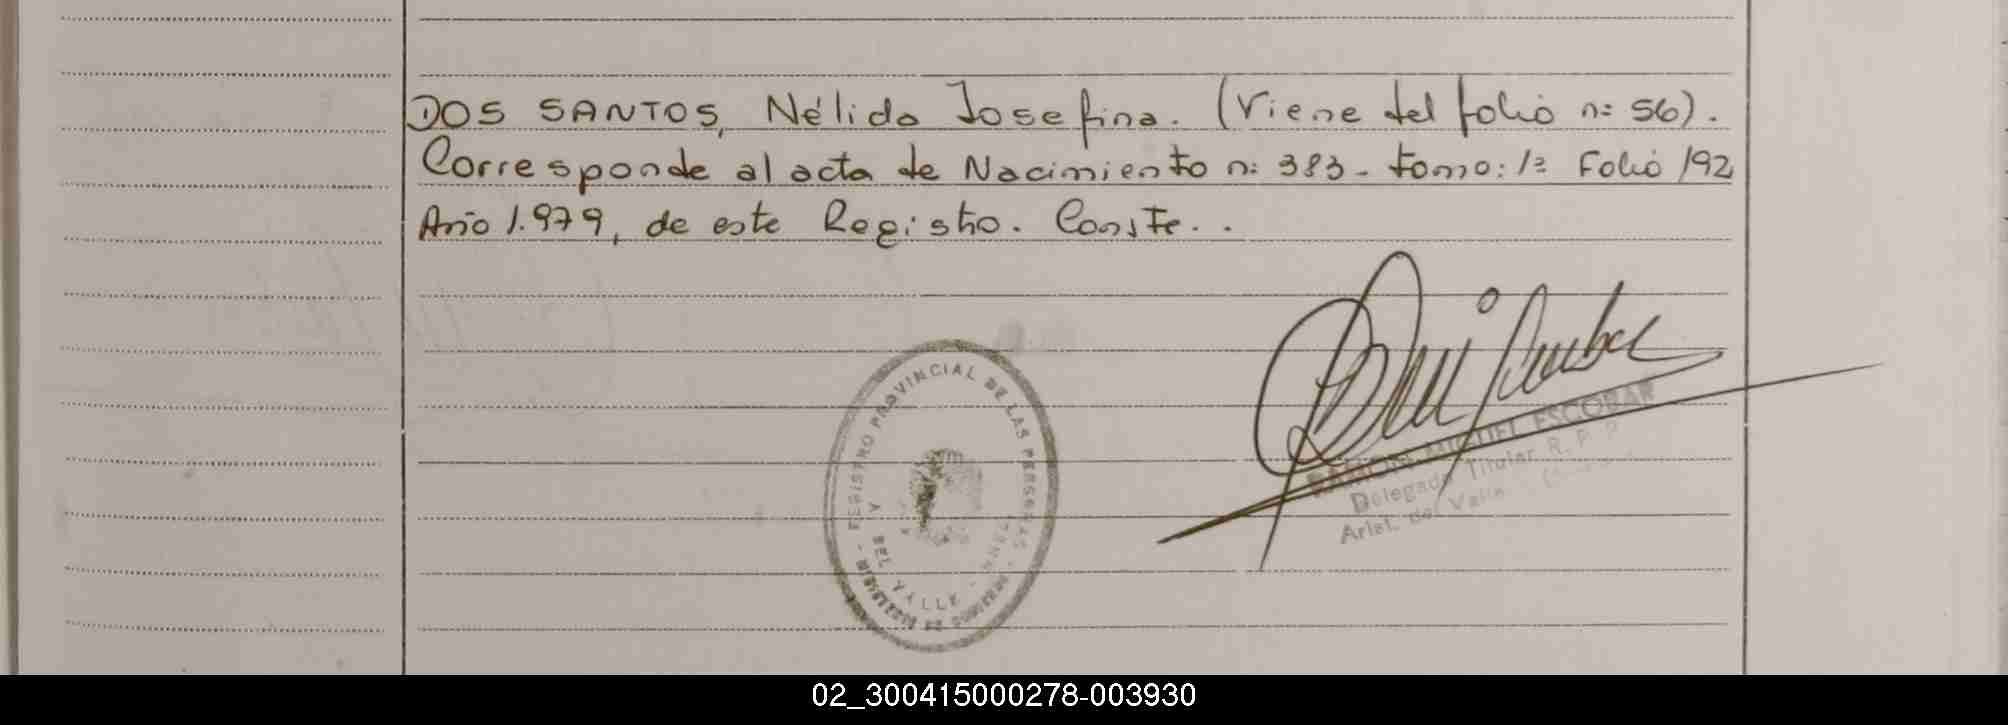 DOS SANTOS, Nélida Josefina. (Viene del folio n: 56).
Corresponde al acta de Nacimiento n: 383- tomo: 1º Folio 192
Año 1.979, de este Registro. Conste..
REGISTRO PROVINCIAL DE LAS PERSONAS
VALLE
RAMON MIGUEL ESCOBAR
Delegado Titular R. P. P.
Arist. del Valle
02_300415000278-003930